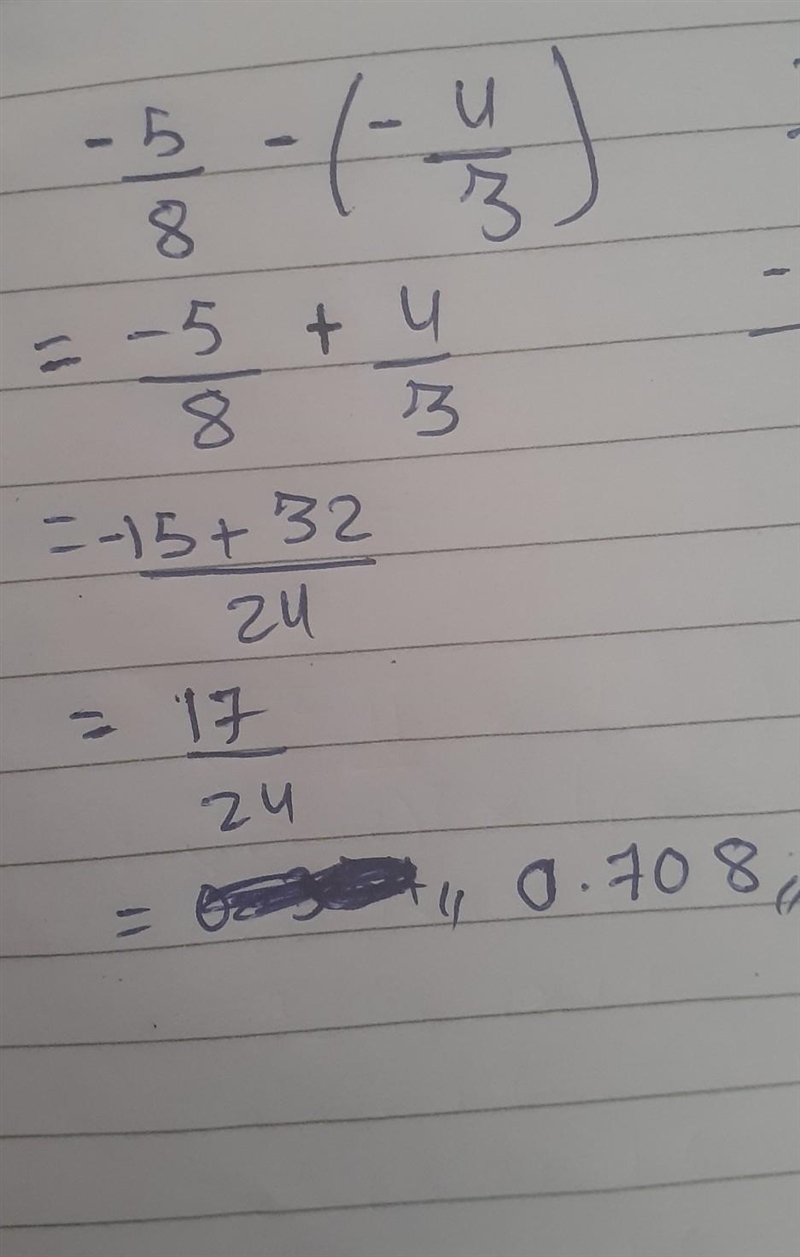 -5/8 - (-4/3)
= -5/8 + 4/3
= -15 + 32/24
= 17/24
= ,, 0.708,,